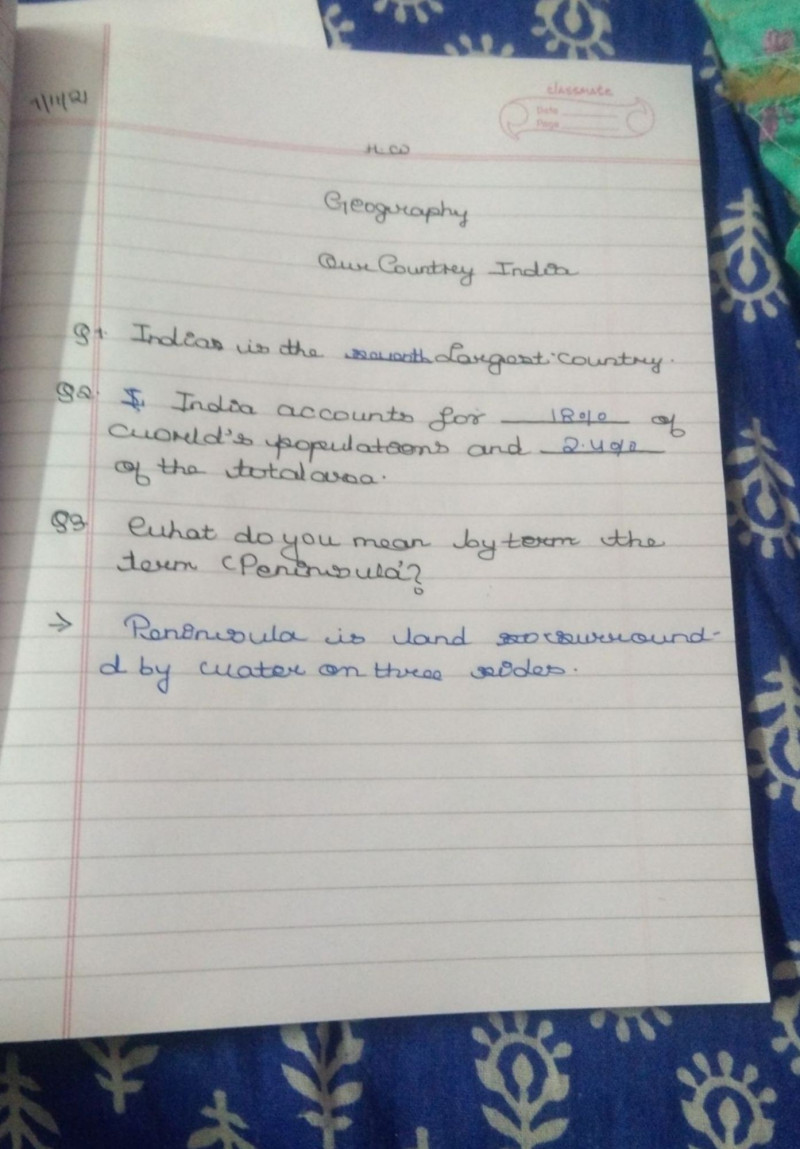 7/11/21
classmate
Date
Page
H.W
Geography
Our Countrey India
Q1. Indias is the seventh Largest country.
Q2. India accounts for 18% of
world's populations and 2.4%
of the total area.
Q3 What do you mean by term the
term (Peninsula'?
→ Peninsula is land surround-
d by water on three sides.